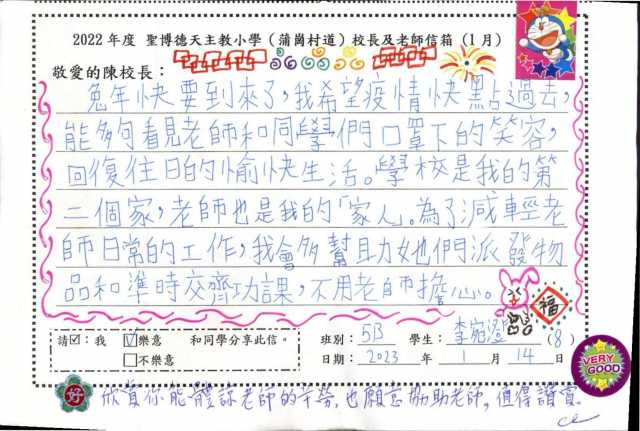 2022 年度 聖博德天主教小學（蒲崗村道）校長及老師信箱（1月）
敬愛的陳校長：
兔年快要到來了，我希望疫情快點過去，
能夠看見老師和同學們口罩下的笑容，
回復往日的愉快生活。學校是我的第
二個家，老師也是我的「家人。為了減輕老
師日常的工作，我會多幫助她們派發物
品和準時交齊功課，不用老師擔心。
福
請☑：我 ☑樂意 和同學分享此信。
□不樂意
班別： 5B 學生： 李宛澄 (8)
日期： 2023 年 1 月 14 日
VERY GOOD
好
欣賞你能體諒老師的辛勞，也願意協助老師，值得讚賞